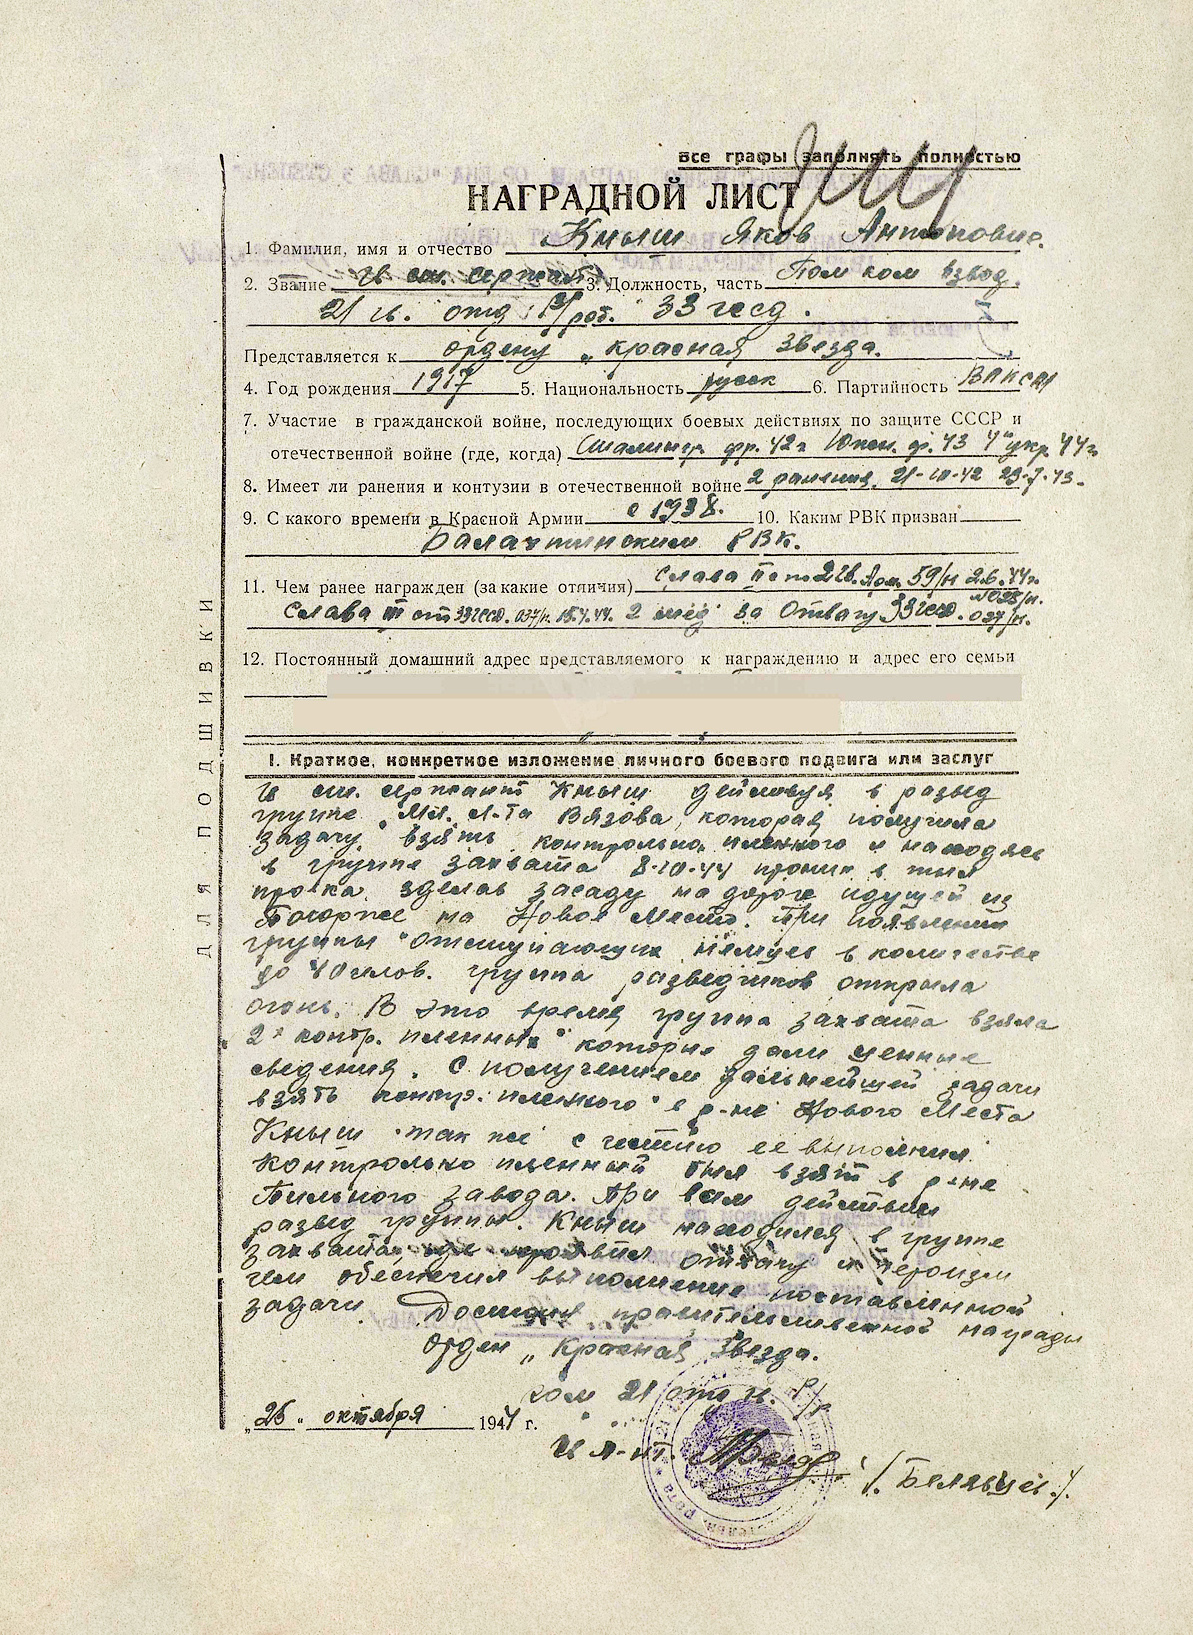 Все графы заполнять полностью
НАГРАДНОЙ ЛИСТ
1. Фамилия, имя и отчество Кныш Яков Антонович.
2. Звание Гв ст. сержант 3. Должность, часть Пом ком взвод.
21 гв. отд р/рот. 33 гвсд.
Представляется к ордену „Красная Звезда.
4. Год рождения 1917 5. Национальность русск 6. Партийность ВЛКСМ
7. Участие в гражданской войне, последующих боевых действиях по защите СССР и
отечественной войне (где, когда) Сталингр фр. 42г Южн. ф. 43 4" укр 44г
8. Имеет ли ранения и контузии в отечественной войне 2 ранения. 21-10-42 29-7-43.
9. С какого времени в Красной Армии с 1938. 10. Каким РВК призван
Балахтинским РВК.
11. Чем ранее награжден (за какие отличия) Слава II ст 2 гв. Арм. 59/н 2.6.44г.
Слава III ст 33гвсд. 037/н. 15.4.44. 2 мед за Отвагу 33гвсд. 037/н.
12. Постоянный домашний адрес представляемого к награждению и адрес его семьи
ДЛЯ ПОДШИВКИ
I. Краткое, конкретное изложение личного боевого подвига или заслуг
Гв ст. сержант Кныш действуя в развед
группе Мл. Л-та Вязова, которая получила
задачу взять контрольно пленного и находясь
в группе захвата 8-10-44 проник в тыл
пр-ка зделав засаду на дороге идущей из
на Новое Место. При появлении
группы отступающих немцев в количестве
до 40 челов. группа разведчиков открыла
огонь. В это время группа захвата взяла
2х контр. пленных которые дали ценные
сведения. С получением дальнейшей задачи
взять контр. пленного в р-не Нового Места
Кныш так же с честью ее выполнил.
Контрольно пленный был взят в р-не
завода. При всем действии
развед группы. Кныш находился в группе
захвата, где проявил отвагу и героизм
чем обеспечил выполнение поставленной
задачи. Достоин правительственной награды
орден „Красная Звезда.
ком 21 отд гв. р/р
„26" октября 1944 г.
Гв л-нт. /. Беляьцев./.